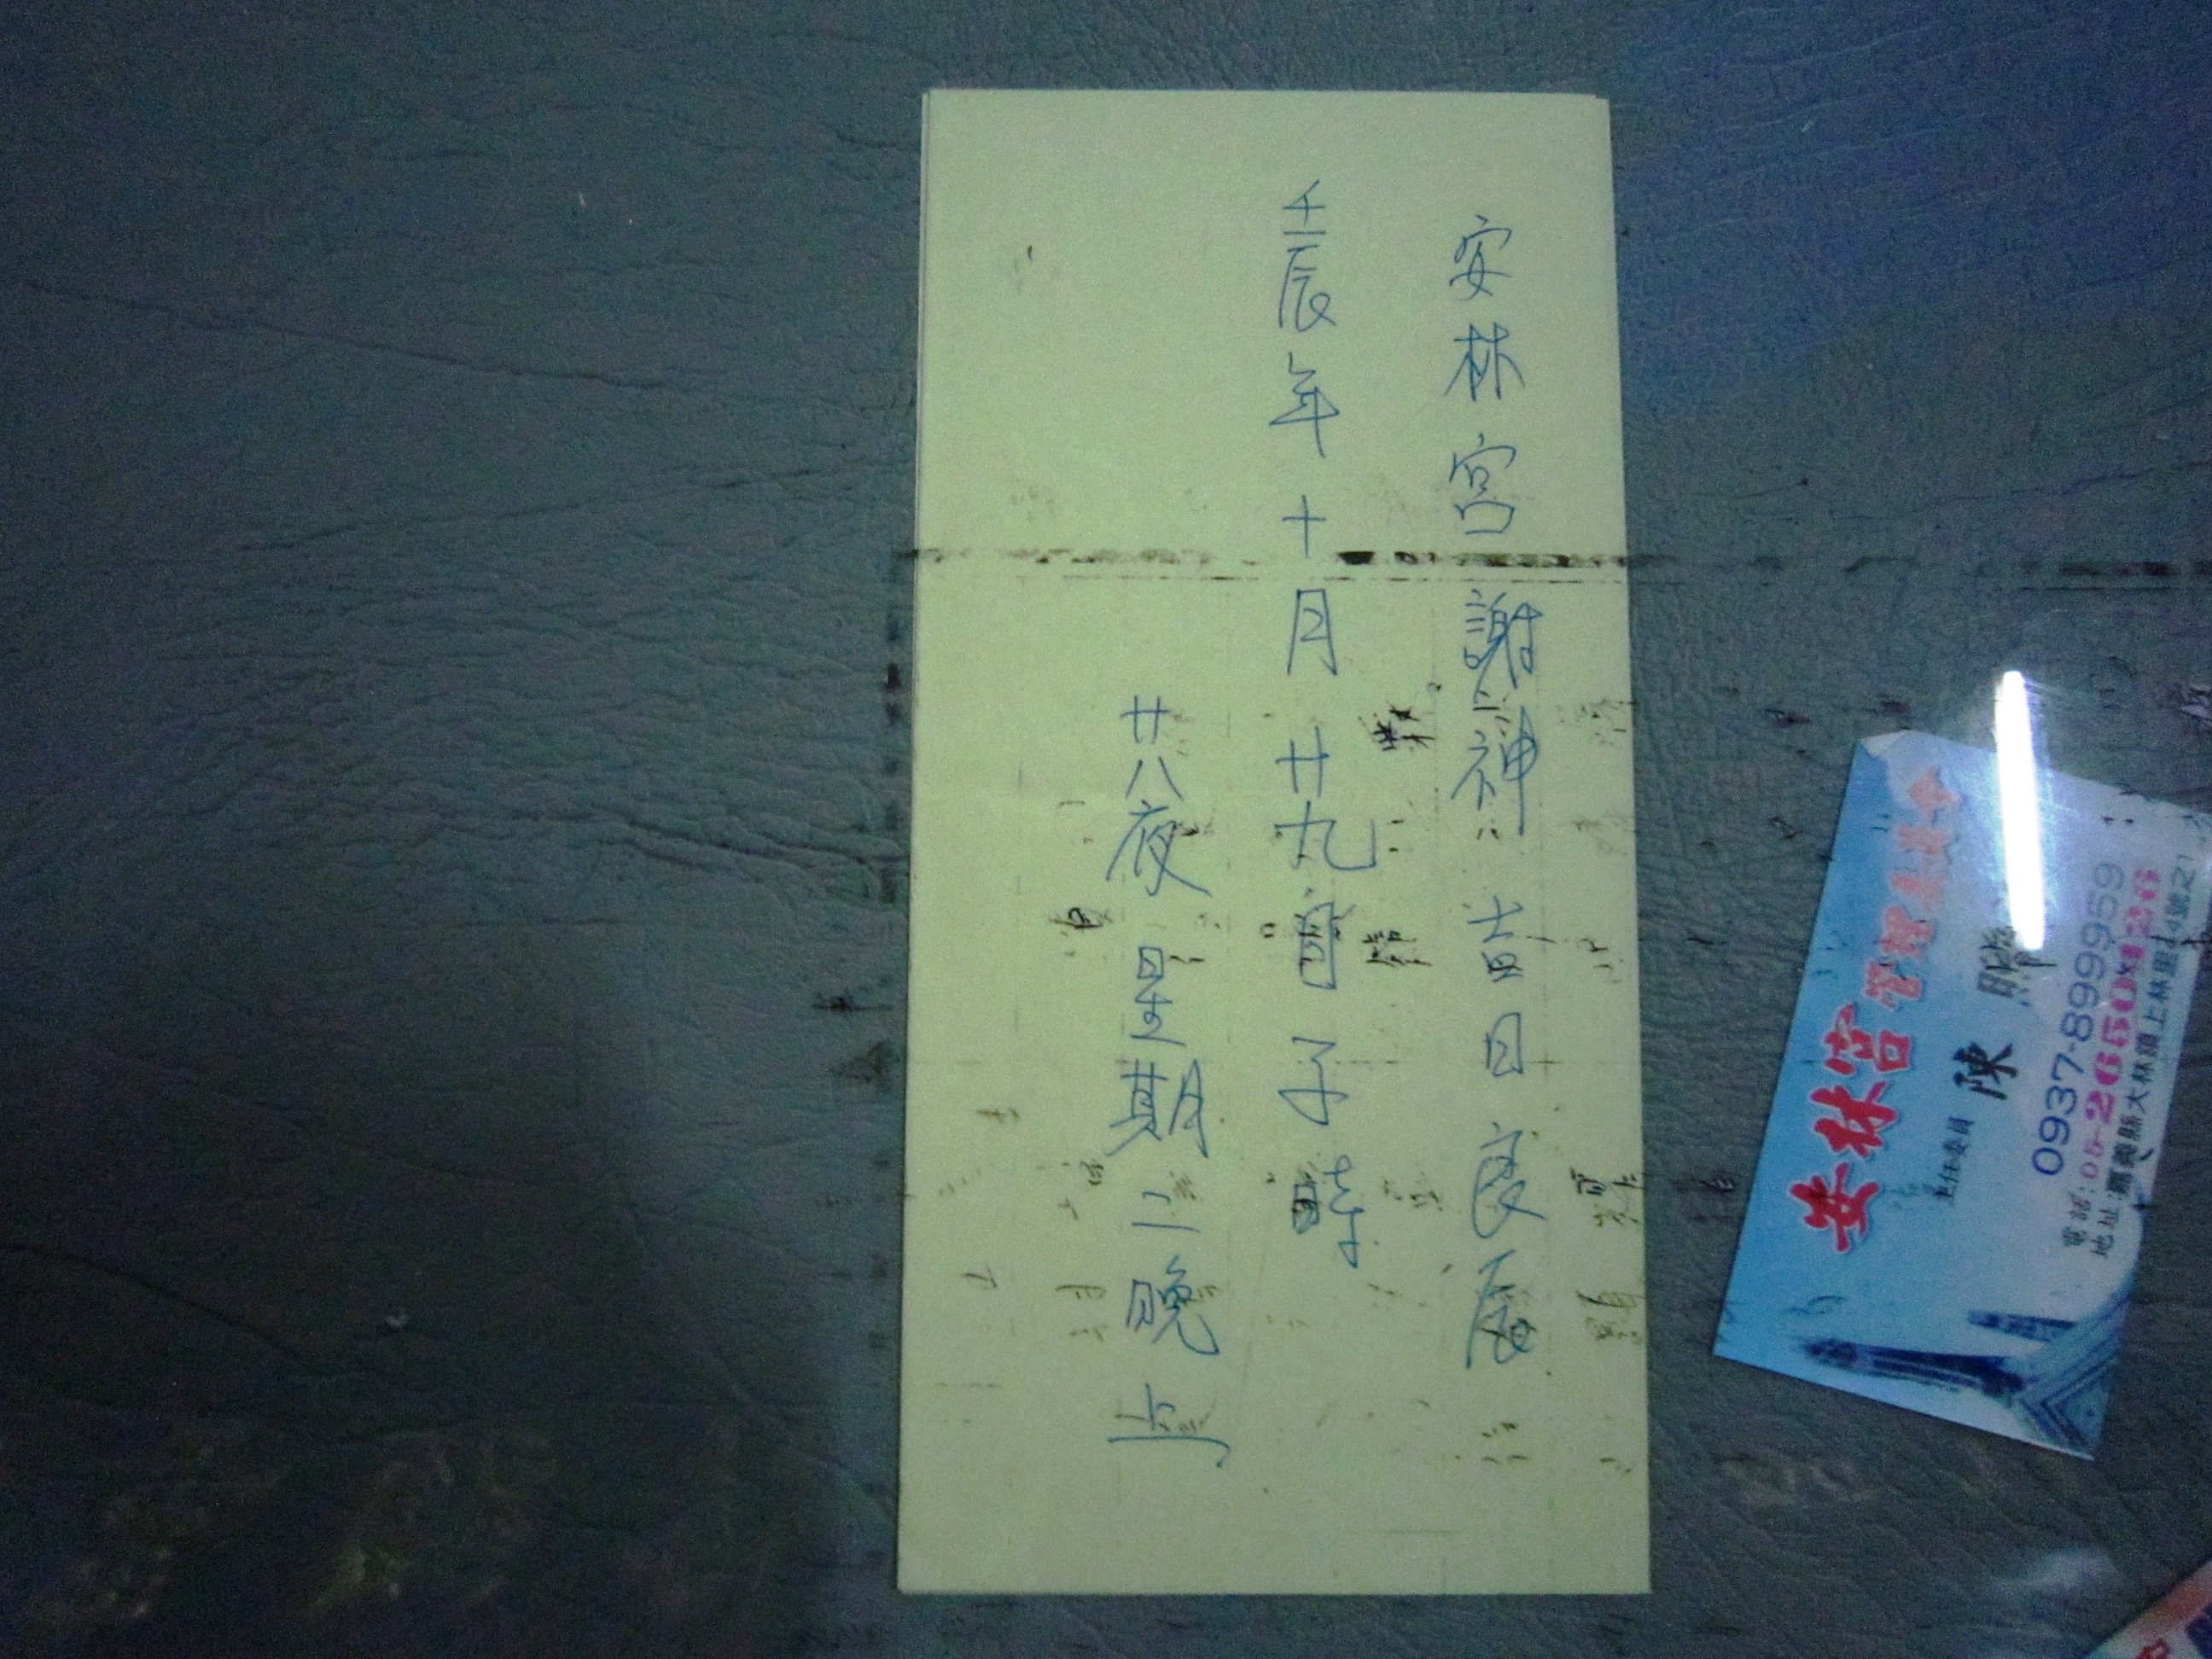 安林宮 謝神 吉日良辰
壬辰年十月廿九日子時
廿八夜 星期二晚上
安林宮管理委員會
主任委員 陳
0937-899959
電話:05-2650126
地址:嘉義縣大林鎮上林里14號之1